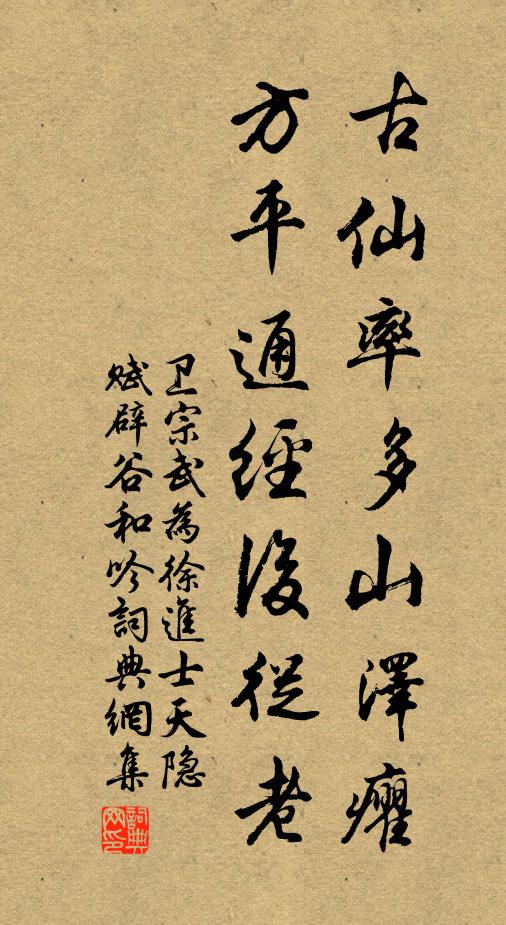 古仙率多山澤癯
方平通經後從老
卫宗武為徐進士天隐
賦辟谷和吟詞典網集
詞典網印